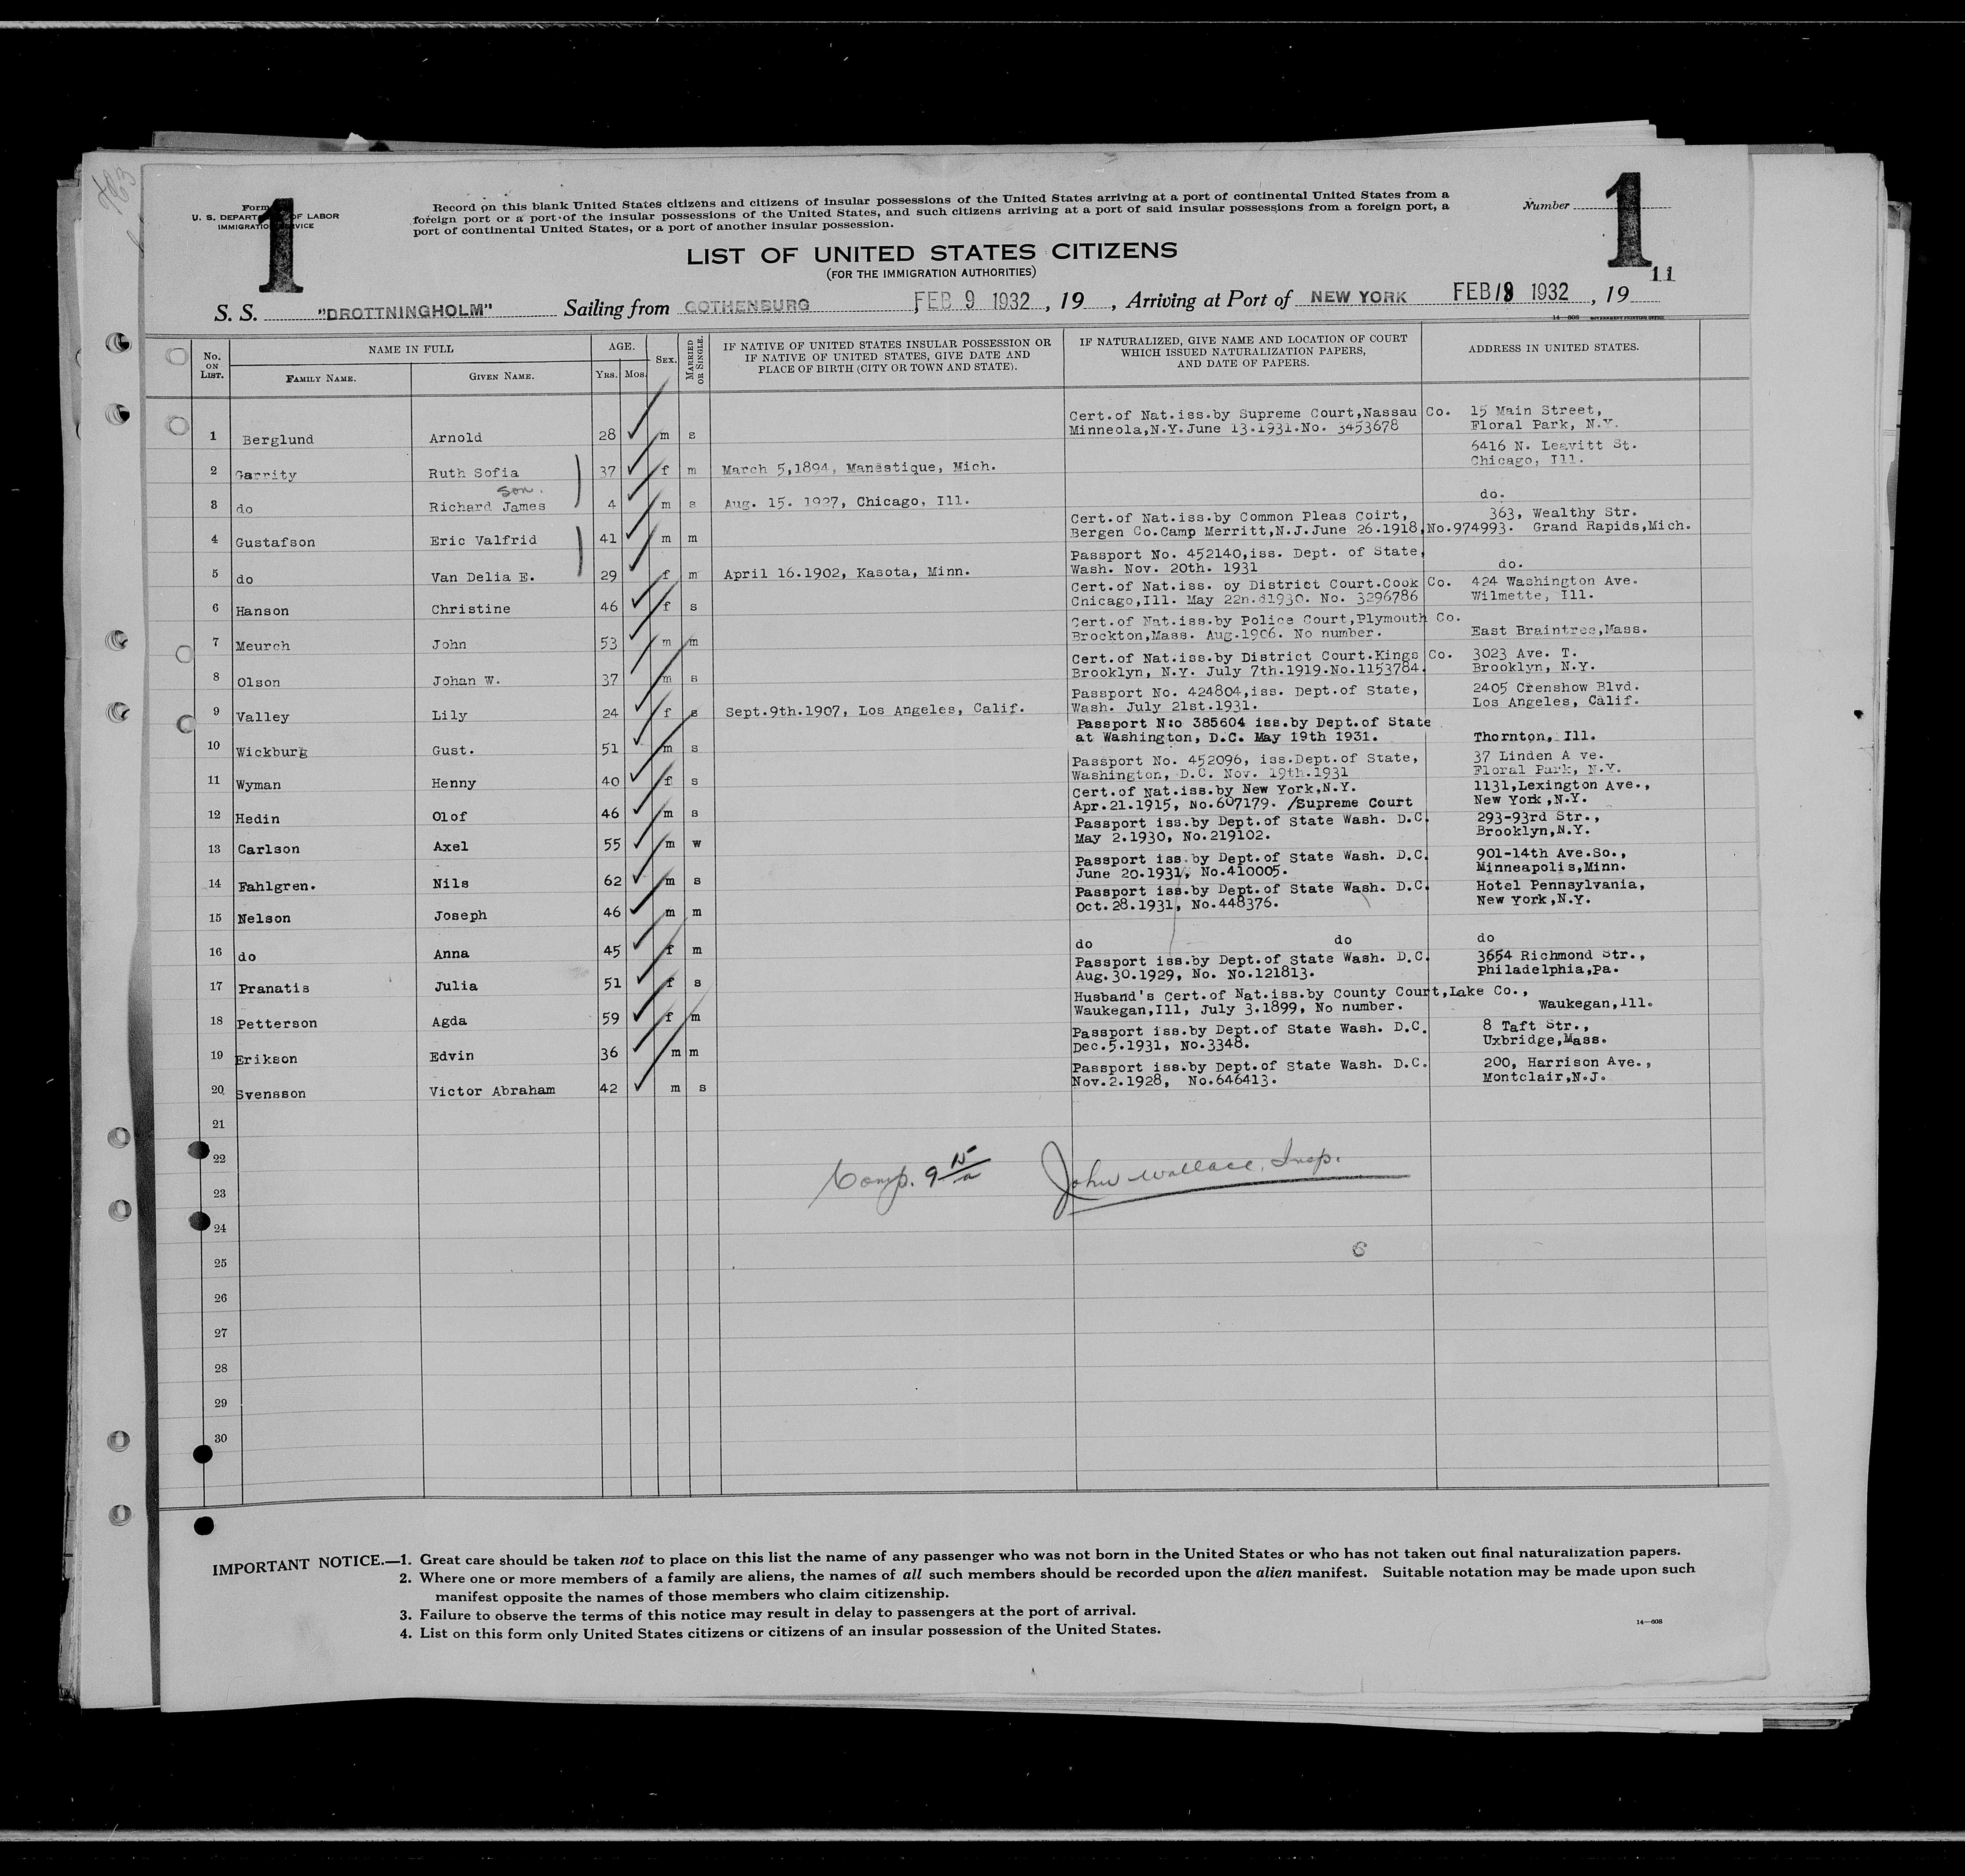 1
Form
U. S. DEPART OF LABOR
IMMIGRATIO VICE
Record on this blank United States citizens and citizens of insular possessions of the United States arriving at a port of continental United States from a
foreign port or a port of the insular possessions of the United States, and such citizens arriving at a port of said insular possessions from a foreign port, a
port of continental United States, or a port of another insular possession.
Number
1
11
LIST OF UNITED STATES CITIZENS
(FOR THE IMMIGRATION AUTHORITIES)
S. S. "DROTTNINGHOLM" Sailing from GOTHENBURG FEB 9 1932, 19 , Arriving at Port of NEW YORK FEB 1932, 19
14—608 GOVERNMENT PRINTING OFFICE
No. ON LIST. NAME IN FULL AGE. SEX. MARRIED OR SINGLE. IF NATIVE OF UNITED STATES INSULAR POSSESSION OR IF NATIVE OF UNITED STATES, GIVE DATE AND PLACE OF BIRTH (CITY OR TOWN AND STATE). IF NATURALIZED, GIVE NAME AND LOCATION OF COURT WHICH ISSUED NATURALIZATION PAPERS, AND DATE OF PAPERS. ADDRESS IN UNITED STATES.
FAMILY NAME. GIVEN NAME. YRS. MOS.
Cert.of Nat.iss.by Supreme Court,Nassau Co. 15 Main Street,
1 Berglund Arnold 28 m s Minneola,N.Y.June 13.1931.No. 3453678 Floral Park, N.Y.
6416 N. Leavitt St.
2 Garrity Ruth Sofia 37 f m March 5,1894, Manestique, Mich. Chicago, Ill.
son.
3 do Richard James 4 m s Aug. 15. 1927, Chicago, Ill. do.
Cert.of Nat.iss.by Common Pleas Coirt, 363, Wealthy Str.
4 Gustafson Eric Valfrid 41 m m Bergen Co.Camp Merritt,N.J.June 26.1918,No.974993. Grand Rapids,Mich.
Passport No. 452140,iss. Dept. of State,
5 do Van Delia E. 29 f m April 16.1902, Kasota, Minn. Wash. Nov. 20th. 1931 do.
Cert.of Nat.iss. by District Court.Cook Co. 424 Washington Ave.
6 Hanson Christine 46 f s Chicago,Ill. May 22n.d1930. No. 3296786 Wilmette, Ill.
Cert.of Nat.iss.by Police Court,Plymouth Co.
7 Meurch John 53 m m Brockton,Mass. Aug.1906. No number. East Braintree,Mass.
Cert.of Nat.iss.by District Court.Kings Co. 3023 Ave. T.
8 Olson Johan W. 37 m s Brooklyn, N.Y. July 7th.1919.No.1153784. Brooklyn, N.Y.
Passport No. 424804,iss. Dept.of State, 2405 Crenshow Blvd.
9 Valley Lily 24 f s Sept.9th.1907, Los Angeles, Calif. Wash. July 21st.1931. Los Angeles, Calif.
Passport N:o 385604 iss.by Dept.of State
10 Wickburg Gust. 51 m s at Washington, D.C. May 19th 1931. Thornton, Ill.
Passport No. 452096, iss.Dept.of State, 37 Linden A ve.
11 Wyman Henny 40 f s Washington, D.C. Nov. 19th.1931 Floral Park, N.Y.
Cert.of Nat.iss.by New York,N.Y. 1131,Lexington Ave.,
12 Hedin Olof 46 m s Apr.21.1915, No.607179. /Supreme Court New York,N.Y.
Passport iss.by Dept.of State Wash. D.C. 293-93rd Str.,
13 Carlson Axel 55 m w May 2.1930, No.219102. Brooklyn,N.Y.
Passport iss.by Dept.of State Wash. D.C. 901-14th Ave.So.,
14 Fahlgren. Nils 62 m s June 20.1931, No.410005. Minneapolis,Minn.
Passport iss.by Dept.of State Wash. D.C. Hotel Pennsylvania,
15 Nelson Joseph 46 m m Oct.28.1931, No.448376. New York,N.Y.
16 do Anna 45 f m do do do
Passport iss.by Dept.of State Wash. D.C. 3654 Richmond Str.,
17 Pranatis Julia 51 f s Aug.30.1929, No. No.121813. Philadelphia,Pa.
Husband's Cert.of Nat.iss.by County Court,Lake Co.,
18 Petterson Agda 59 f m Waukegan,Ill, July 3.1899, No number. Waukegan,Ill.
Passport iss.by Dept.of State Wash. D.C. 8 Taft Str.,
19 Erikson Edvin 36 m m Dec.5.1931, No.3348. Uxbridge,Mass.
Passport iss.by Dept.of State Wash. D.C. 200, Harrison Ave.,
20 Svensson Victor Abraham 42 m s Nov.2.1928, No.646413. Montclair,N.J.
21
22
Comp. 9 15/a John Wallace, Insp.
23
24
25
6
26
27
28
29
30
IMPORTANT NOTICE.—1. Great care should be taken not to place on this list the name of any passenger who was not born in the United States or who has not taken out final naturalization papers.
2. Where one or more members of a family are aliens, the names of all such members should be recorded upon the alien manifest. Suitable notation may be made upon such
manifest opposite the names of those members who claim citizenship.
3. Failure to observe the terms of this notice may result in delay to passengers at the port of arrival.
4. List on this form only United States citizens or citizens of an insular possession of the United States.
14—608